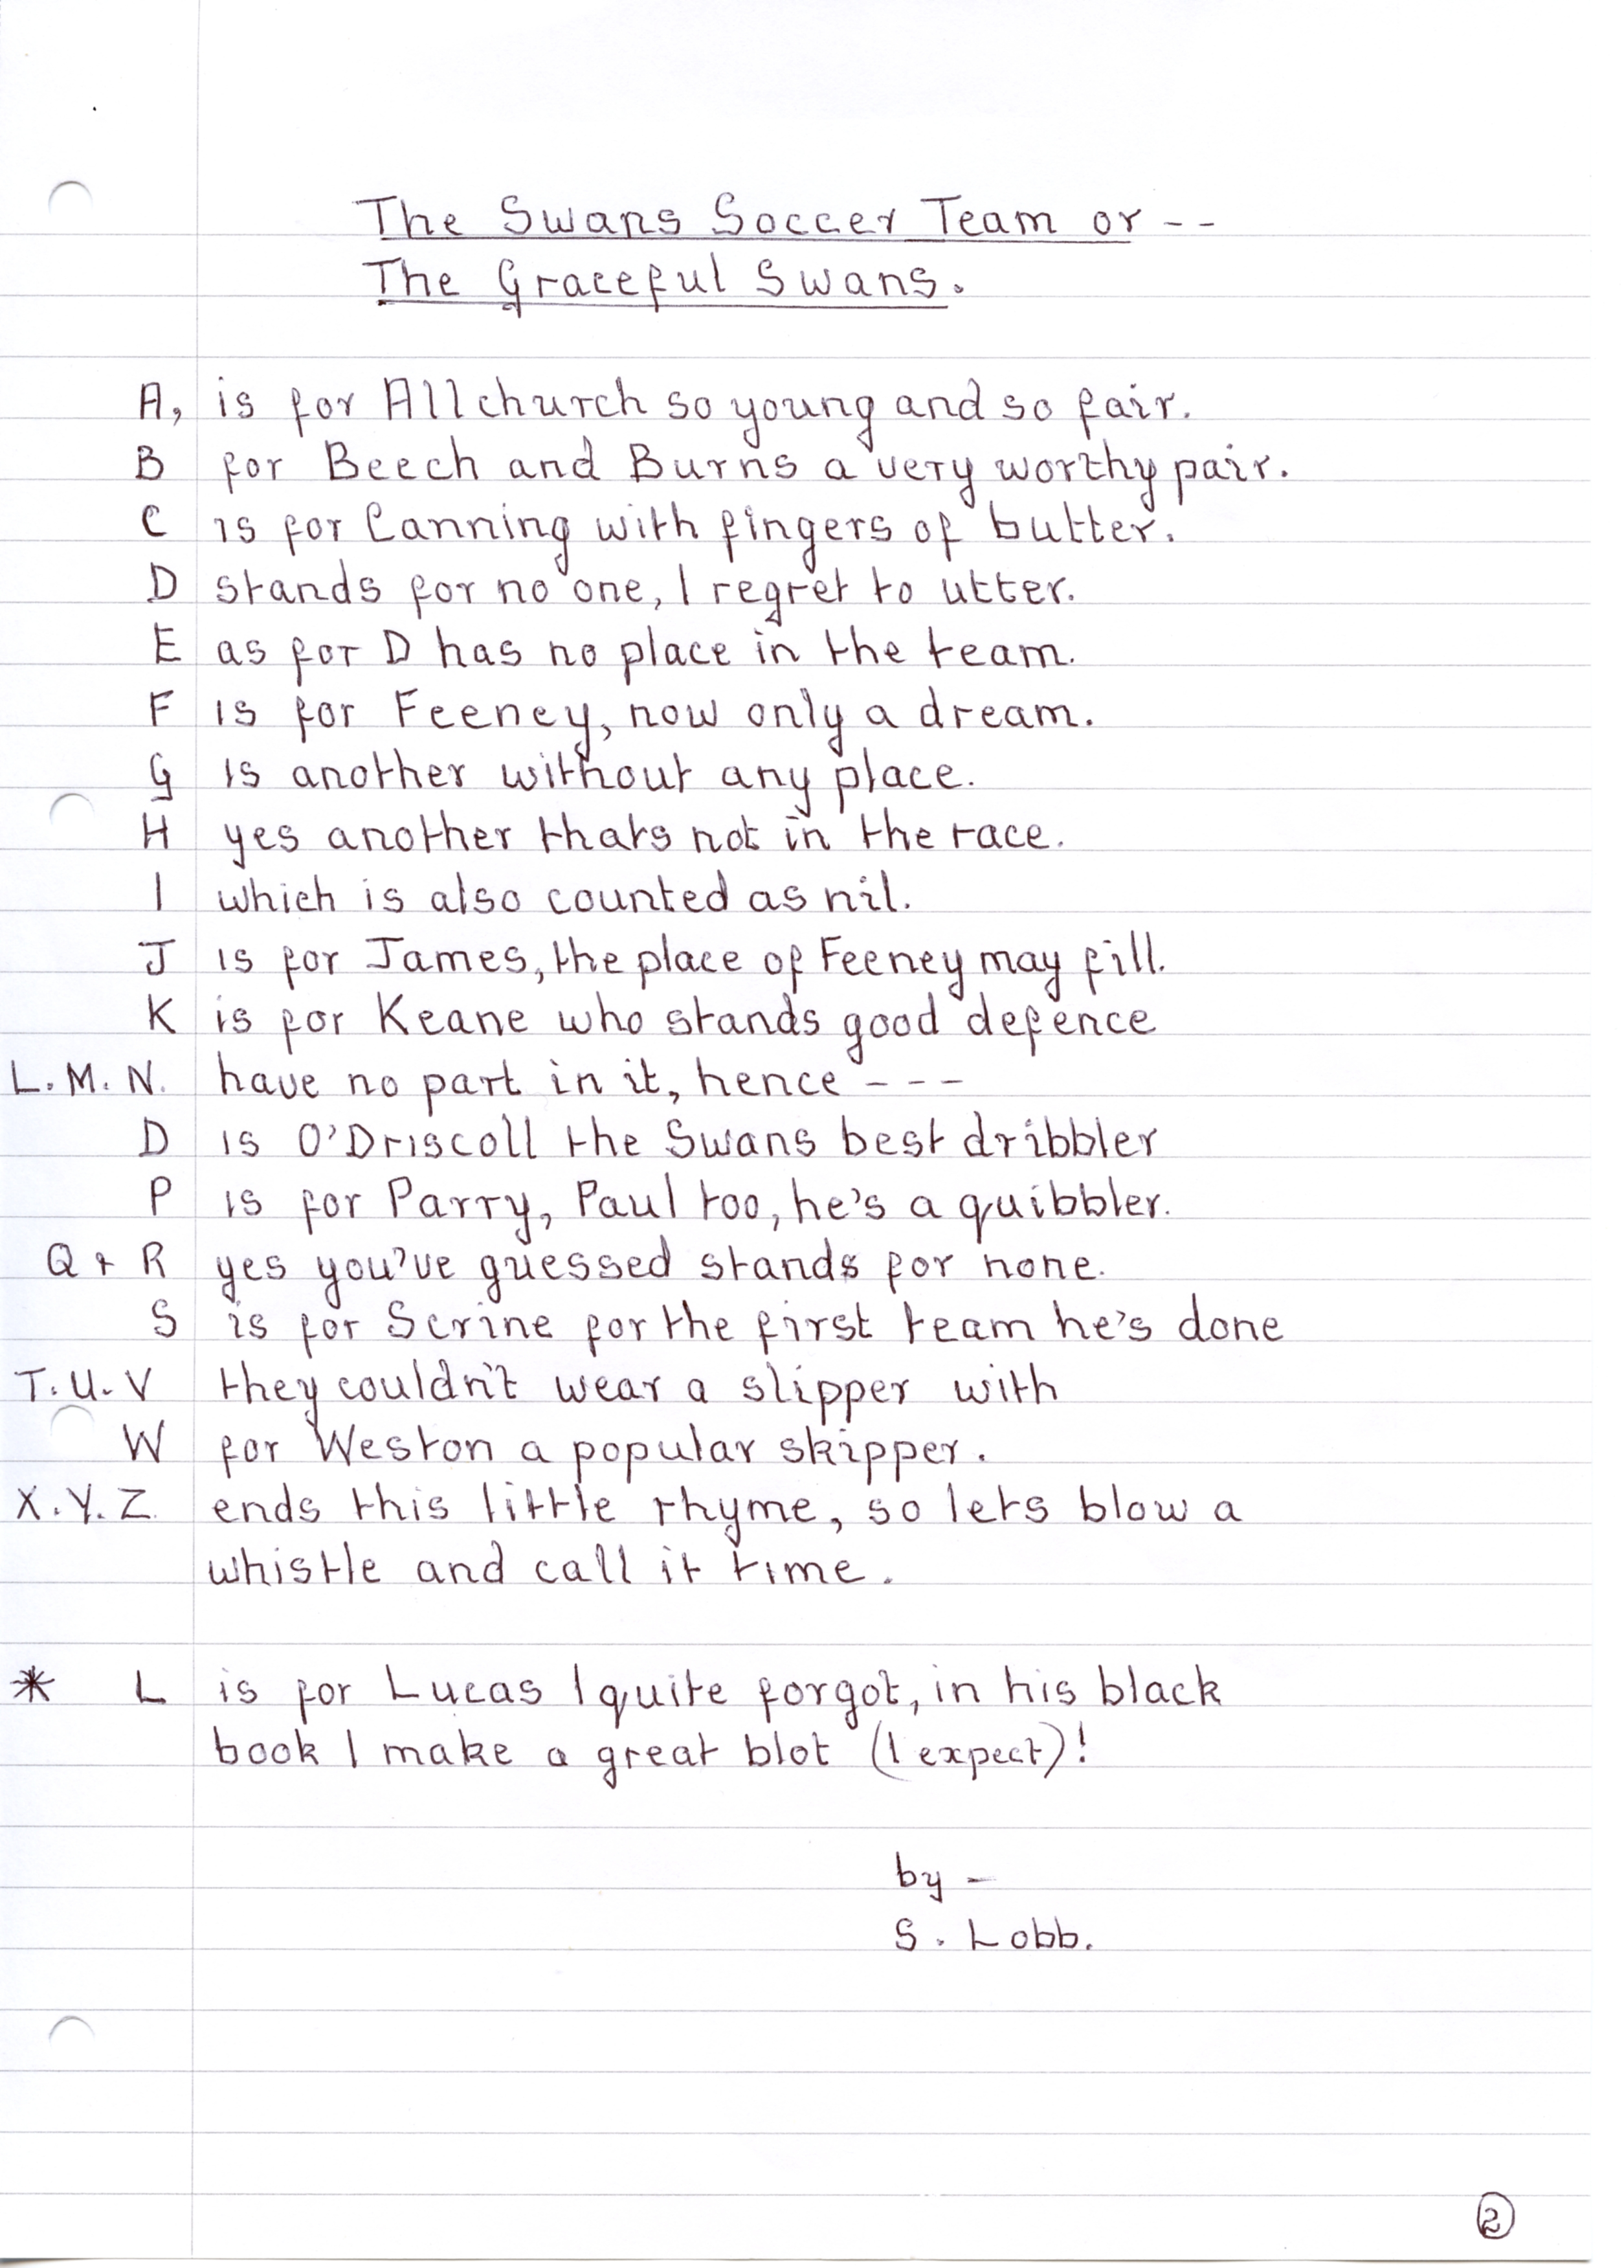 The Swans Soccer Team or --
The Graceful Swans.
A, is for Allchurch so young and so fair.
B for Beech and Burns a very worthy pair.
C is for Canning with fingers of butter.
D stands for no one, I regret to utter.
E as for D has no place in the team.
F is for Feeney, now only a dream.
G is another without any place.
H yes another thats not in the race.
I which is also counted as nil.
J is for James, the place of Feeney may fill.
K is for Keane who stands good defence
L. M. N. have no part in it, hence ---
D is O'Driscoll the Swans best dribbler
P is for Parry, Paul too, he's a quibbler.
Q + R yes you've guessed stands for none.
S is for Scrine for the first team he's done
T. U. V they couldn't wear a slipper with
W for Weston a popular skipper.
X. Y. Z. ends this little rhyme, so lets blow a
whistle and call it time.
* L is for Lucas I quite forgot, in his black
book I make a great blot (I expect)!
by -
S. Lobb.
2